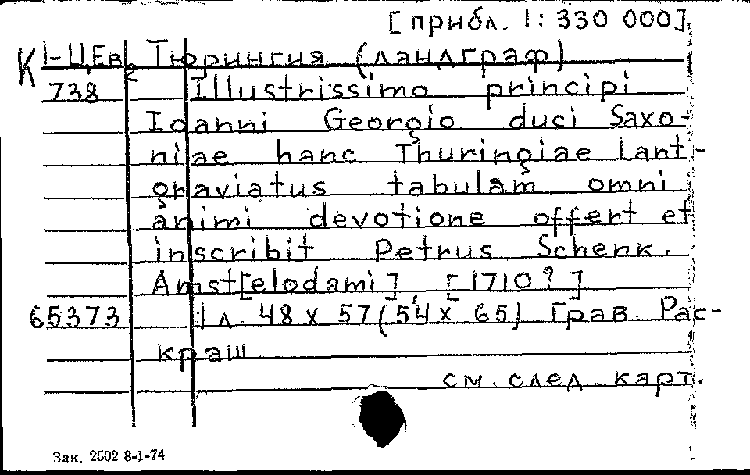 [прибл. 1: 330 000]
К 1-ЦЕв2 Тюрингия (ландграф)
738 Illustrissimo principi
Ioanni Georgio duci Saxo-
niae hanc Thuringiae Lant-
graviatus tabulam omni
animi devotione offert et
inscribit Petrus Schenk.
Amst[elodami] [1710?]
65373 1 л. 48 x 57 (54 x 65) Грав. Рас-
краш
см. след. карт.
Зак. 2502 8-1-74